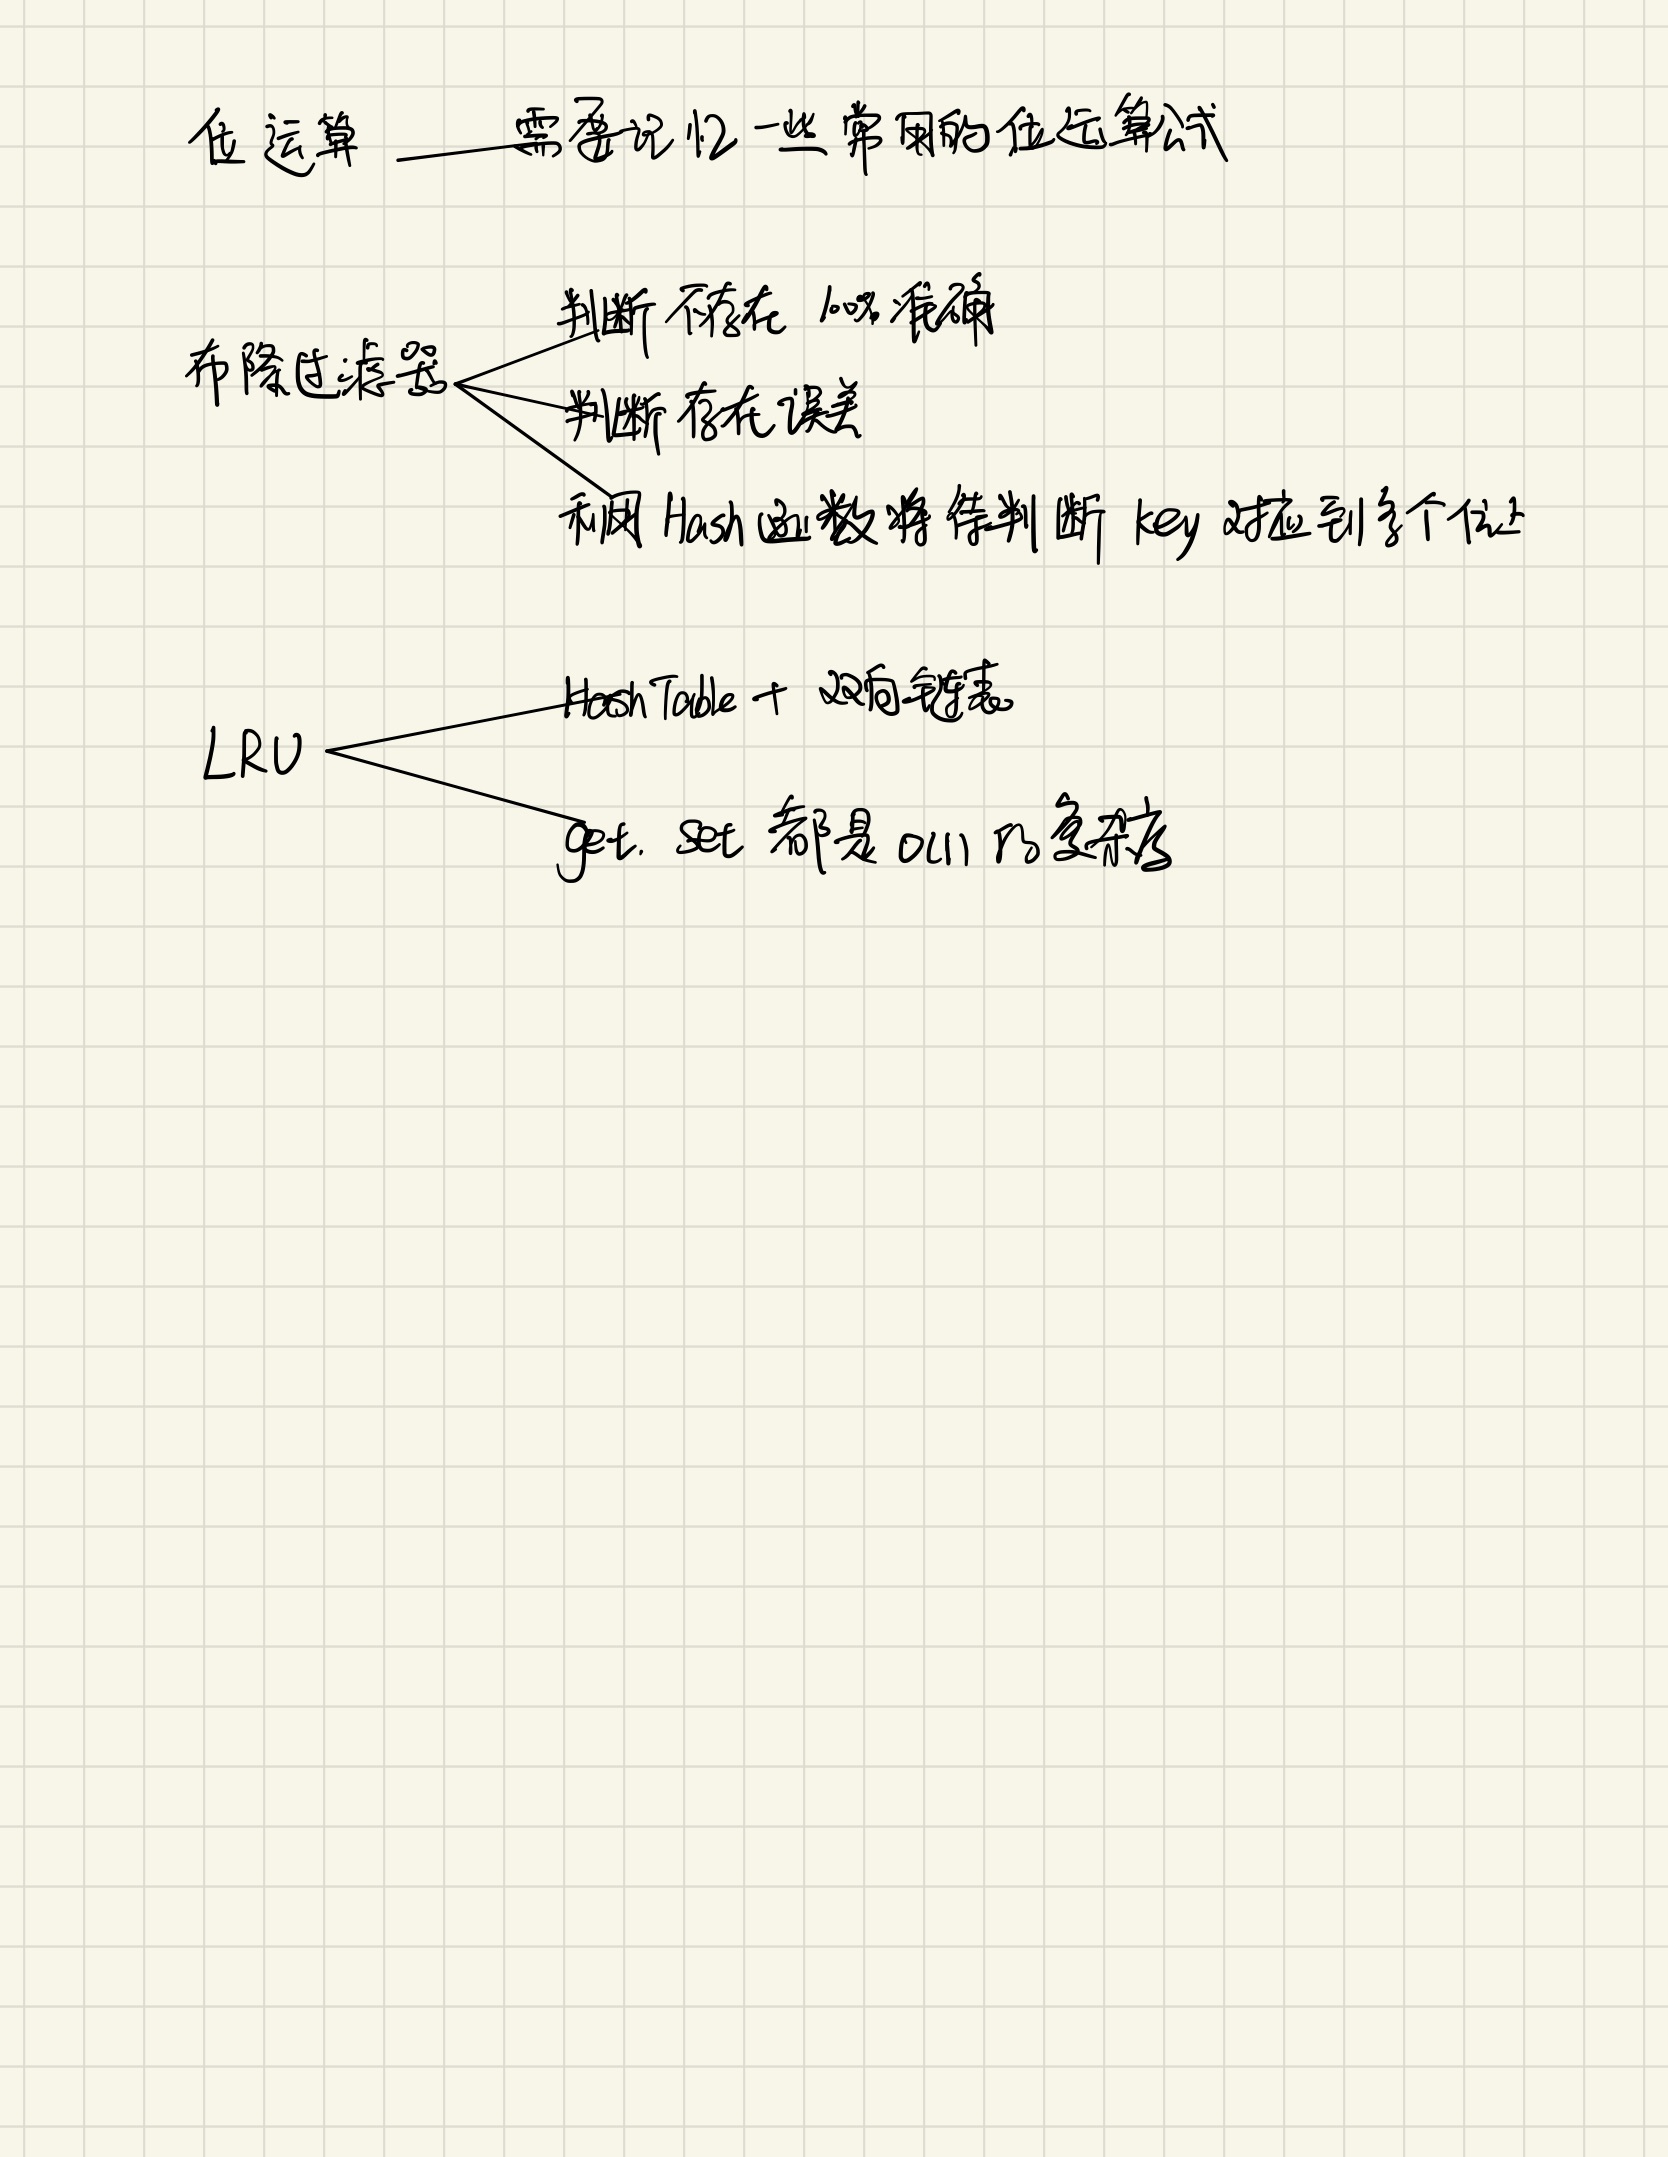 位运算 需要记忆一些常用的位运算公式
判断不存在 100%准确
布隆过滤器
判断存在误差
利用Hash函数将待判断key对应到多个位上
HashTable + 双向链表
LRU
get. set 都是O(1)的复杂度